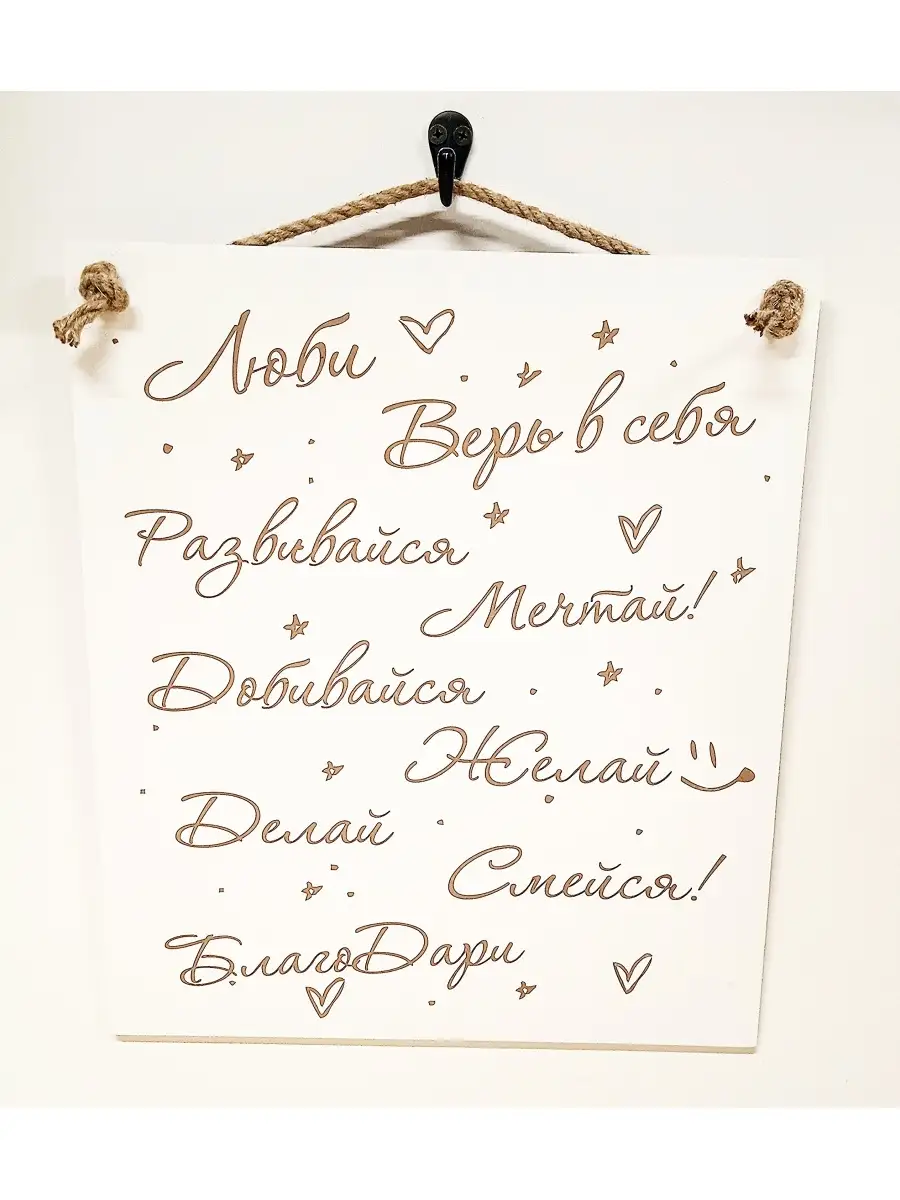 Люби
Верь в себя
Развивайся
Мечтай!
Добивайся
Желай
Делай
Смейся!
БлагоДари